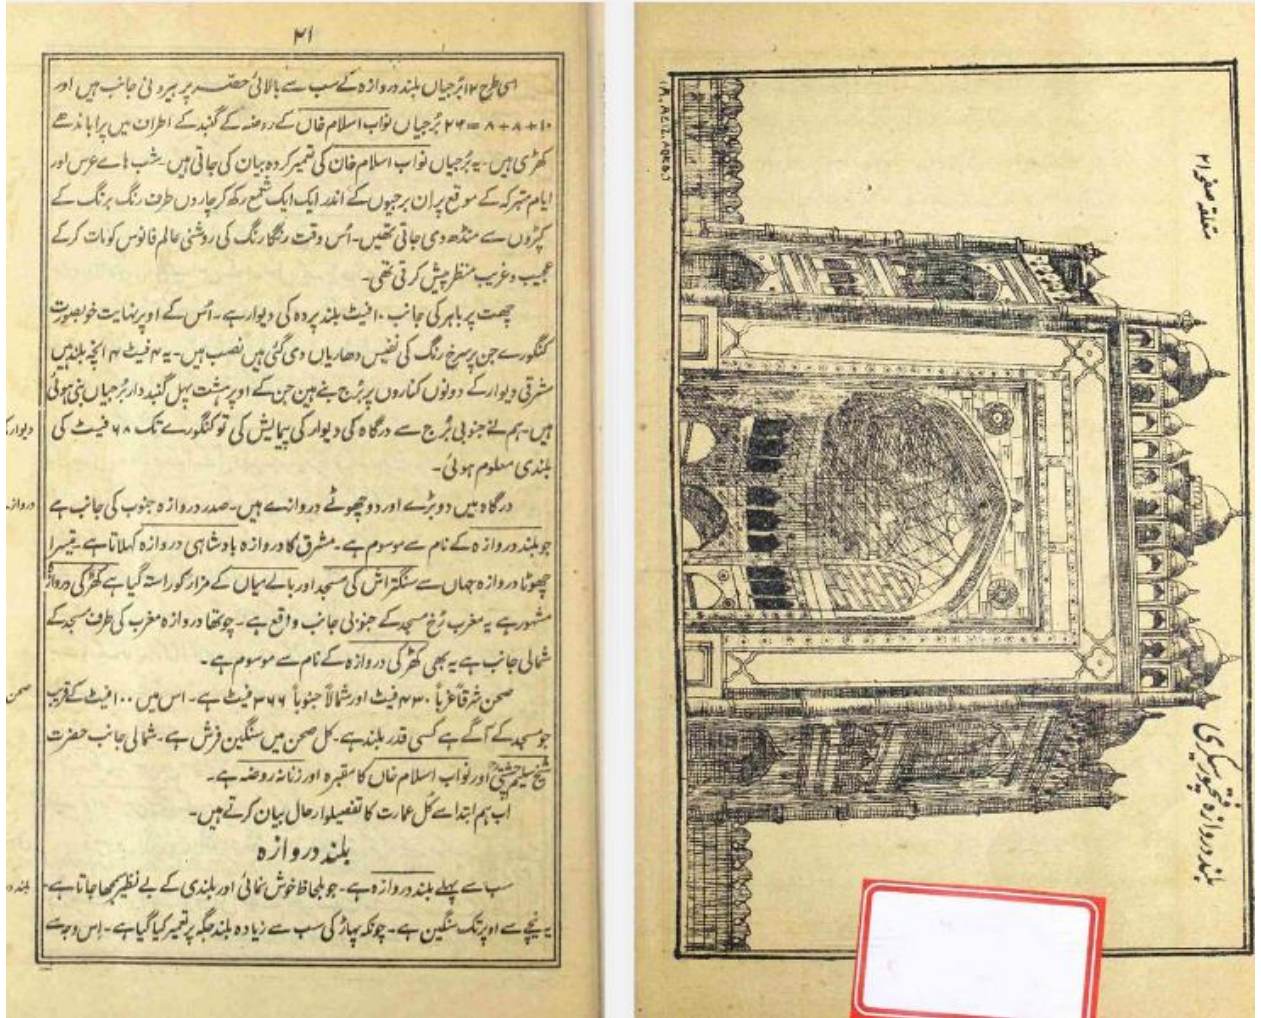 ۲۱
اسی طرح ۱۲ بُرجیاں بلند دروازہ کے سب سے بالائی حصّہ پر بیرونی جانب ہیں اور
۱۰+۸+۸=۲۶ بُرجیاں نواب اسلام خاں کے روضہ کے گنبد کے اطراف میں پرا باندھے
کھڑی ہیں۔ یہ بُرجیاں نواب اسلام خان کی تعمیر کردہ بیان کی جاتی ہیں۔ شب ہاے عرس اور
ایام متبرکہ کے موقع پر ان برجیوں کے اندر ایک ایک شمع رکھ کر چاروں طرف رنگ برنگ کے
کپڑوں سے منڈھ دی جاتی تھیں۔ اُس وقت رنگا رنگ کی روشنی عالم فانوس کو مات کرکے
عجیب و غریب منظر پیش کرتی تھی۔
چھت پر باہر کی جانب ۱۰ فیٹ بلند پردہ کی دیوار ہے۔ اُس کے اوپر نہایت خوبصورت
کنگورے جن پر سرخ رنگ کی نفیس دھاریاں دی گئی ہیں نصب ہیں۔ یہ ۴ فیٹ ۴ انچہ بلند ہیں
مشرقی دیوار کے دونوں کناروں پر بُرج بنے ہین جن کے اوپر ہشت پہل گنبد دار بُرجیاں بنی ہوئی
ہیں۔ ہم نے جنوبی بُرج سے درگاہ کی دیوار کی پیمایش کی تو کنگورے تک ۶۸ فیٹ کی
بلندی معلوم ہوئی۔
درگاہ میں دو بڑے اور دو چھوٹے دروازے ہیں۔ صدر دروازہ جنوب کی جانب ہے
جو بلند دروازہ کے نام سے موسوم ہے۔ مشرق کا دروازہ بادشاہی دروازہ کہلاتا ہے۔ تیسرا
چھوٹا دروازہ جہاں سے سنگتراش کی مسجد اور بالے میاں کے مزار کو راستہ گیا ہے کھڑکی دروازہ
مشہور ہے یہ مغرب رُخ مسجد کے جنوبی جانب واقع ہے۔ چوتھا دروازہ مغرب کی طرف مسجد کے
شمالی جانب ہے یہ بھی کھڑکی دروازہ کے نام سے موسوم ہے۔
صحن شرقاً غرباً ۴۳۰ فیٹ اور شمالاً جنوباً ۳۶۶ فیٹ ہے۔ اس میں ۱۰۰ فیٹ کے قریب
جو مسجد کے آگے ہے کسی قدر بلند ہے۔ کل صحن میں سنگین فرش ہے۔ شمالی جانب حضرت
شیخ سلیم چشتیؒ اور نواب اسلام خاں کا مقبرہ اور زنانہ روضہ ہے۔
اب ہم ابتدا سے کُل عمارت کا تفصیلوار حال بیان کرتے ہیں۔
بلند دروازہ
سب سے پہلے بلند دروازہ ہے۔ جو بلحاظ خوش نمائی اور بلندی کے بے نظیر سمجھا جاتا ہے۔
یہ نیچے سے اوپر تک سنگین ہے۔ چونکہ پہاڑ کی سب سے زیادہ بلند جگہ پر تعمیر کیا گیا ہے۔ اِس وجہ سے
دیوار
صحن
متعلقہ صفحہ ۲۱
بلند دروازہ فتحپور سیکری